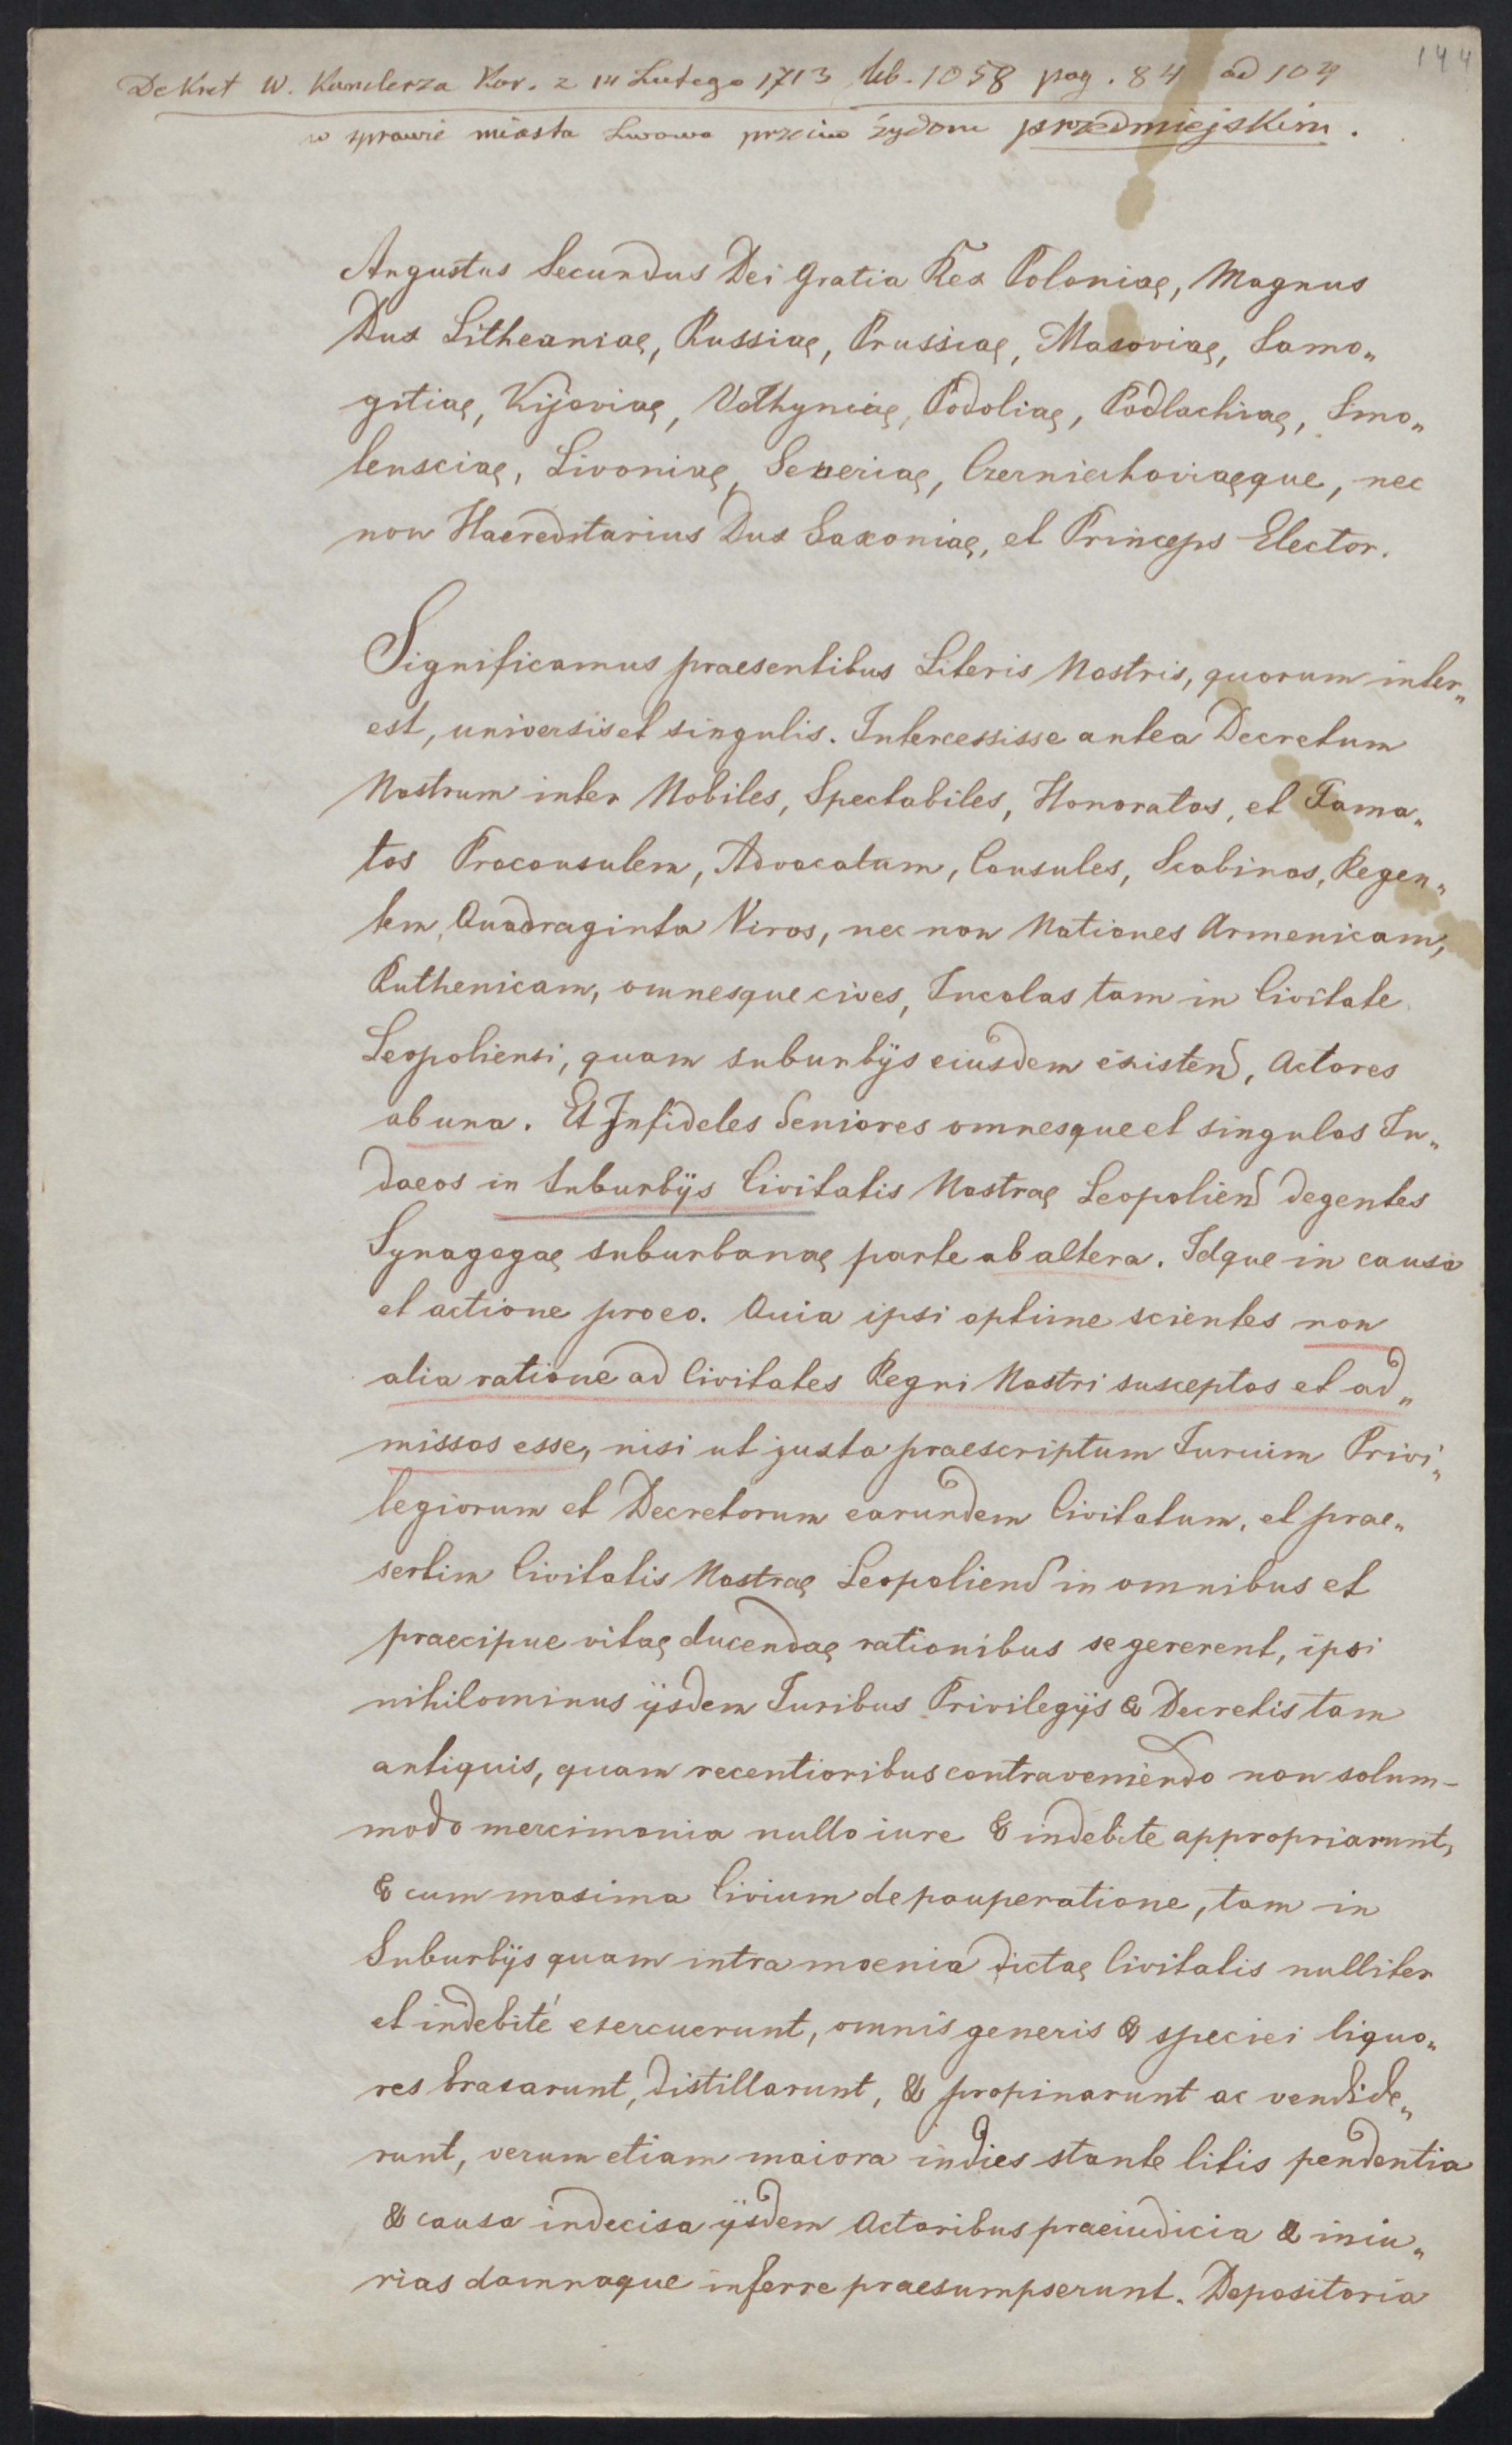 144
Dekret W. Kanclerza Kor. z 14 Lutego 1713 lib. 1058 pag. 84 ad 104
w sprawie miasta Lwowa przeciw żydom przedmiejskim.
Augustus Secundus Dei Gratia Rex Poloniaę, Magnus
Dux Litheaniaę, Russiaę, Prussiaę, Masoviaę, Samo„
gitiaę, Kijoviaę, Volhyniaę, Podoliaę, Podlachiaę, Smo„
lensciaę, Livoniaę, Severiaę, Czerniechoviaęque, nec
non Haereditarius Dux Saxoniaę, et Princeps Elector.
Significamus praesentibus Literis Nostris, quorum inter„
est, universis et singulis. Intercessisse antea Decretum
Nostrum inter Nobiles, Spectabiles, Honoratos, et Fama„
tos Proconsulem, Advocatum, Consules, Scabinos, Regen„
tem, Quadraginta Viros, nec non Nationes Armenicam,
Ruthenicam, omnesque cives, Incolas tam in Civitate
Leopoliensi, quam suburbijs eiusdem existend, Actores
ab una. Et Infideles Seniores omnesque et singulos Iu„
daeos in Suburbijs Civitatis Nostraę Leopoliend degentes
Synagogaę suburbanaę parte ab altera. Idque in causa
et actione pro eo. Quia ipsi optime scientes non
alia ratione ad Civitates Regni Nostri susceptos et ad„
missos esse, nisi ut juxta praescriptum Iurium Privi„
legiorum et Decretorum earundem Civitatum, et prae„
sertim Civitatis Nostraę Leopoliend in omnibus et
praecipue vitaę ducendaę rationibus se gererent, ipsi
nihilominus ijsdem Iuribus Privilegijs & Decretis tam
antiquis, quam recentioribus contraveniendo non solum-
modo mercimonia nullo iure & indebite appropriarunt,
& cum maxima Civium depauperatione, tam in
Suburbijs quam intra moenia dictaę Civitatis nulliter
et indebité exercuerunt, omnis generis & speciei liquo„
res braxarunt, distillarunt, & propinarunt ac vendide„
runt, verum etiam maiora indies stante litis pendentia
& causa indecisa ijsdem Actoribus praeiudicia & iniu„
rias damnaque inferre praesumpserunt. Depositoria